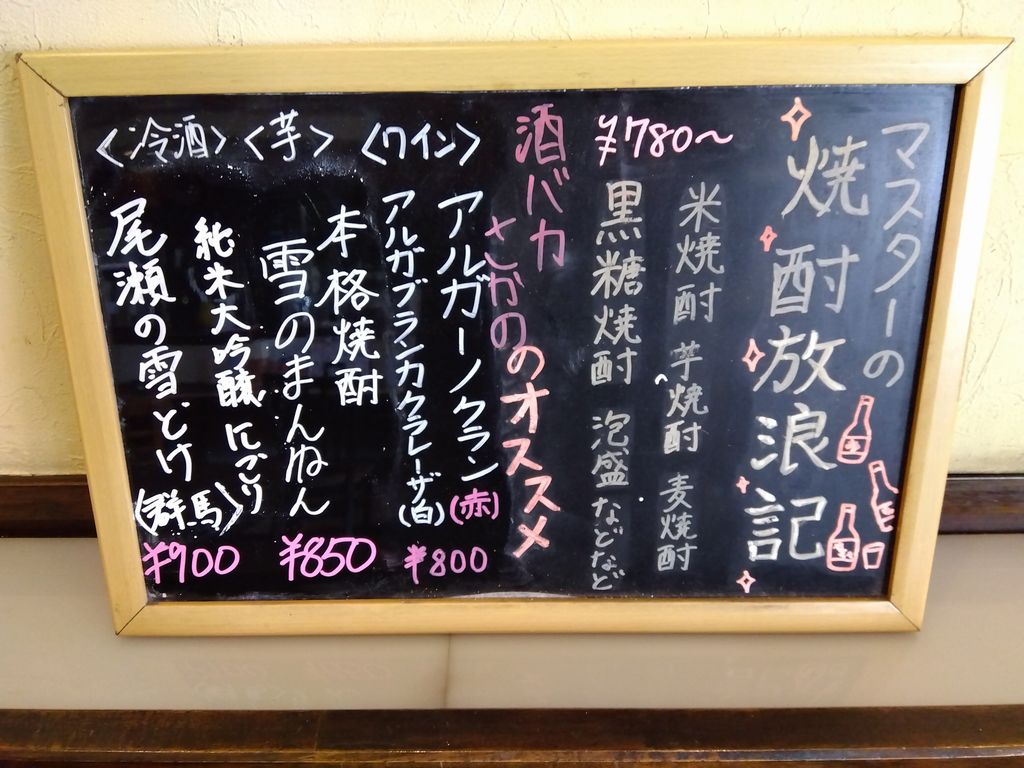 マスターの
焼酎放浪記
米焼酎 芋焼酎 麦焼酎
¥780〜
黒糖焼酎 泡盛 などなど
酒バカ
さかののオススメ
<ワイン>
アルガーノクラン(赤)
アルガブランカクラレーザ(白)
¥800
<芋>
本格焼酎
雪のまんねん
¥850
<冷酒>
純米大吟醸 にごり
尾瀬の雪どけ
(群馬)
¥900